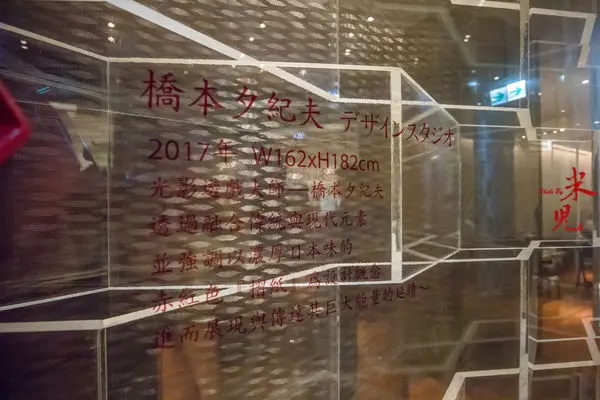 橋本夕紀夫 デザインスタジオ
2017年 W162xH182cm
光影遊戲大師——橋本夕紀夫
透過融合傳統與現代元素
並強調以濃厚日本味的
赤紅色「摺紙」為設計概念
進而展現與傳達其巨大能量的延續~
Photo By 米兒